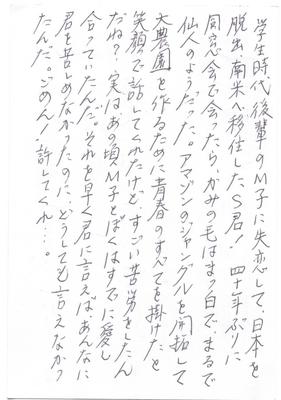 学生時代後輩のM子に失恋して、日本を
脱出南米へ移住したS君！　四十年ぶりに
同窓会で会ったら、かみの毛はまっ白で、まるで
仙人のようだった。アマゾンのジャングルを開拓して
大農園を作るために青春のすべてを掛けたと
笑顔で話してくれたけど、すごい苦労をしたん
だね？　実はあの頃M子とぼくはすでに愛し
合っていたんだ。それを早く君に言えばあんなに
君を苦しめなかったのに、どうしても言えなかっ
たんだ。ごめん！許してくれ…。